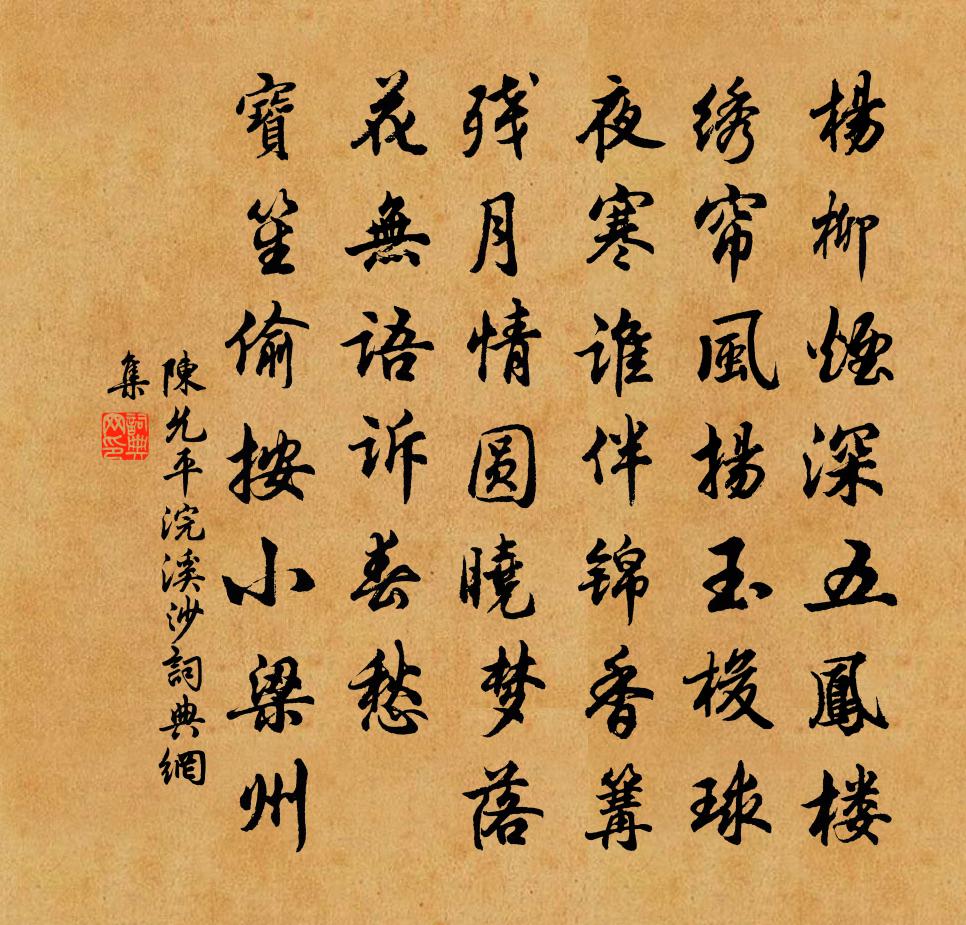 楊柳煙深五鳳楼
绣帘風揚玉梭球
夜寒谁伴锦香篝
残月情圆曉梦落
花無語诉春愁
寶笙偷按小梁州
陳允平浣溪沙詞典網
集
詞典网印